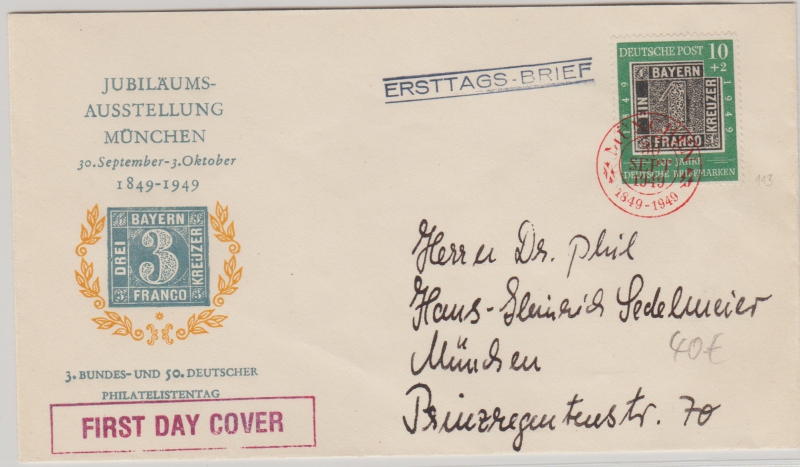 JUBILÄUMS-
AUSSTELLUNG
MÜNCHEN
30. September-3. Oktober
1849-1949
BAYERN
DREI
3
KREUZER
FRANCO
3. BUNDES- UND 50. DEUTSCHER
PHILATELISTENTAG
FIRST DAY COVER
ERSTTAGS-BRIEF
DEUTSCHE POST 10
+2
1849
1949
BAYERN
EIN
1
KREUZER
FRANCO
100 Jahre
DEUTSCHE BRIEFMARKEN
30
SEPT
1949
1849-1949
113
Herrn Dr. phil
Hans-Heinrich Sedelmeier
München
Prinzregentenstr. 70
40€